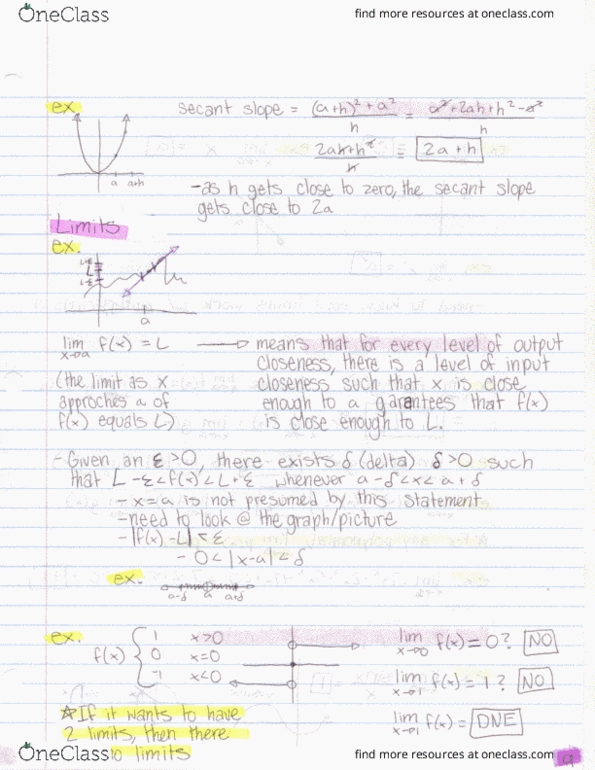 OneClass
find more resources at oneclass.com
ex.
secant slope = (a+h)² + a² / h = a²+2ah+h²-a² / h
2ah+h² / h = 2a+h
a a+h
-as h gets close to zero, the secant slope
gets close to 2a
Limits
ex.
L+ε
L
L-ε
a
lim x→a f(x) = L → means that for every level of output
closeness, there is a level of input
(the limit as x closeness such that x is close
approches a of enough to a garantees that f(x)
f(x) equals L) is close enough to L.
- Given an ε>0, there exists δ (delta) δ>0 such
that L-ε<f(x)<L+ε whenever a-δ<x<a+δ
- x=a is not presumed by this statement
-need to look @ the graph/picture
- |f(x)-L|<ε
- 0<|x-a|<δ
ex.
a-δ a a+δ
ex.
f(x) { 1 x>0
0 x=0
-1 x<0
lim x→0 f(x)=0? NO
lim x→1 f(x)=1? NO
lim x→1 f(x)= DNE
☆If it wants to have
2 limits, then there
10 limits
OneClass
find more resources at oneclass.com